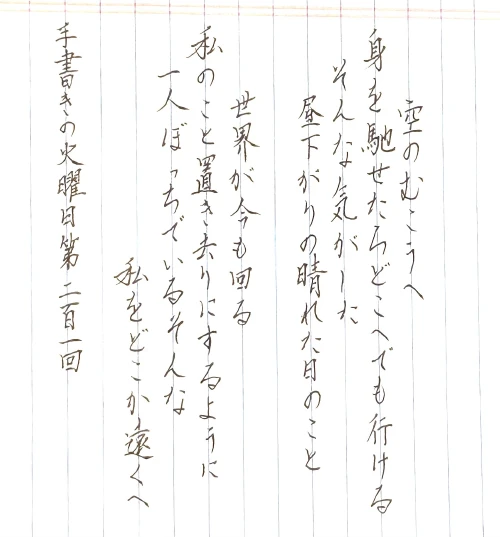 空のむこうへ
身を馳せたらどこへでも行ける
そんな気がした
昼下がりの晴れた日のこと
世界が今も回る
私のこと置き去りにするように
一人ぼっちでいるそんな
私をどこか遠くへ
手書きの火曜日第二百一回